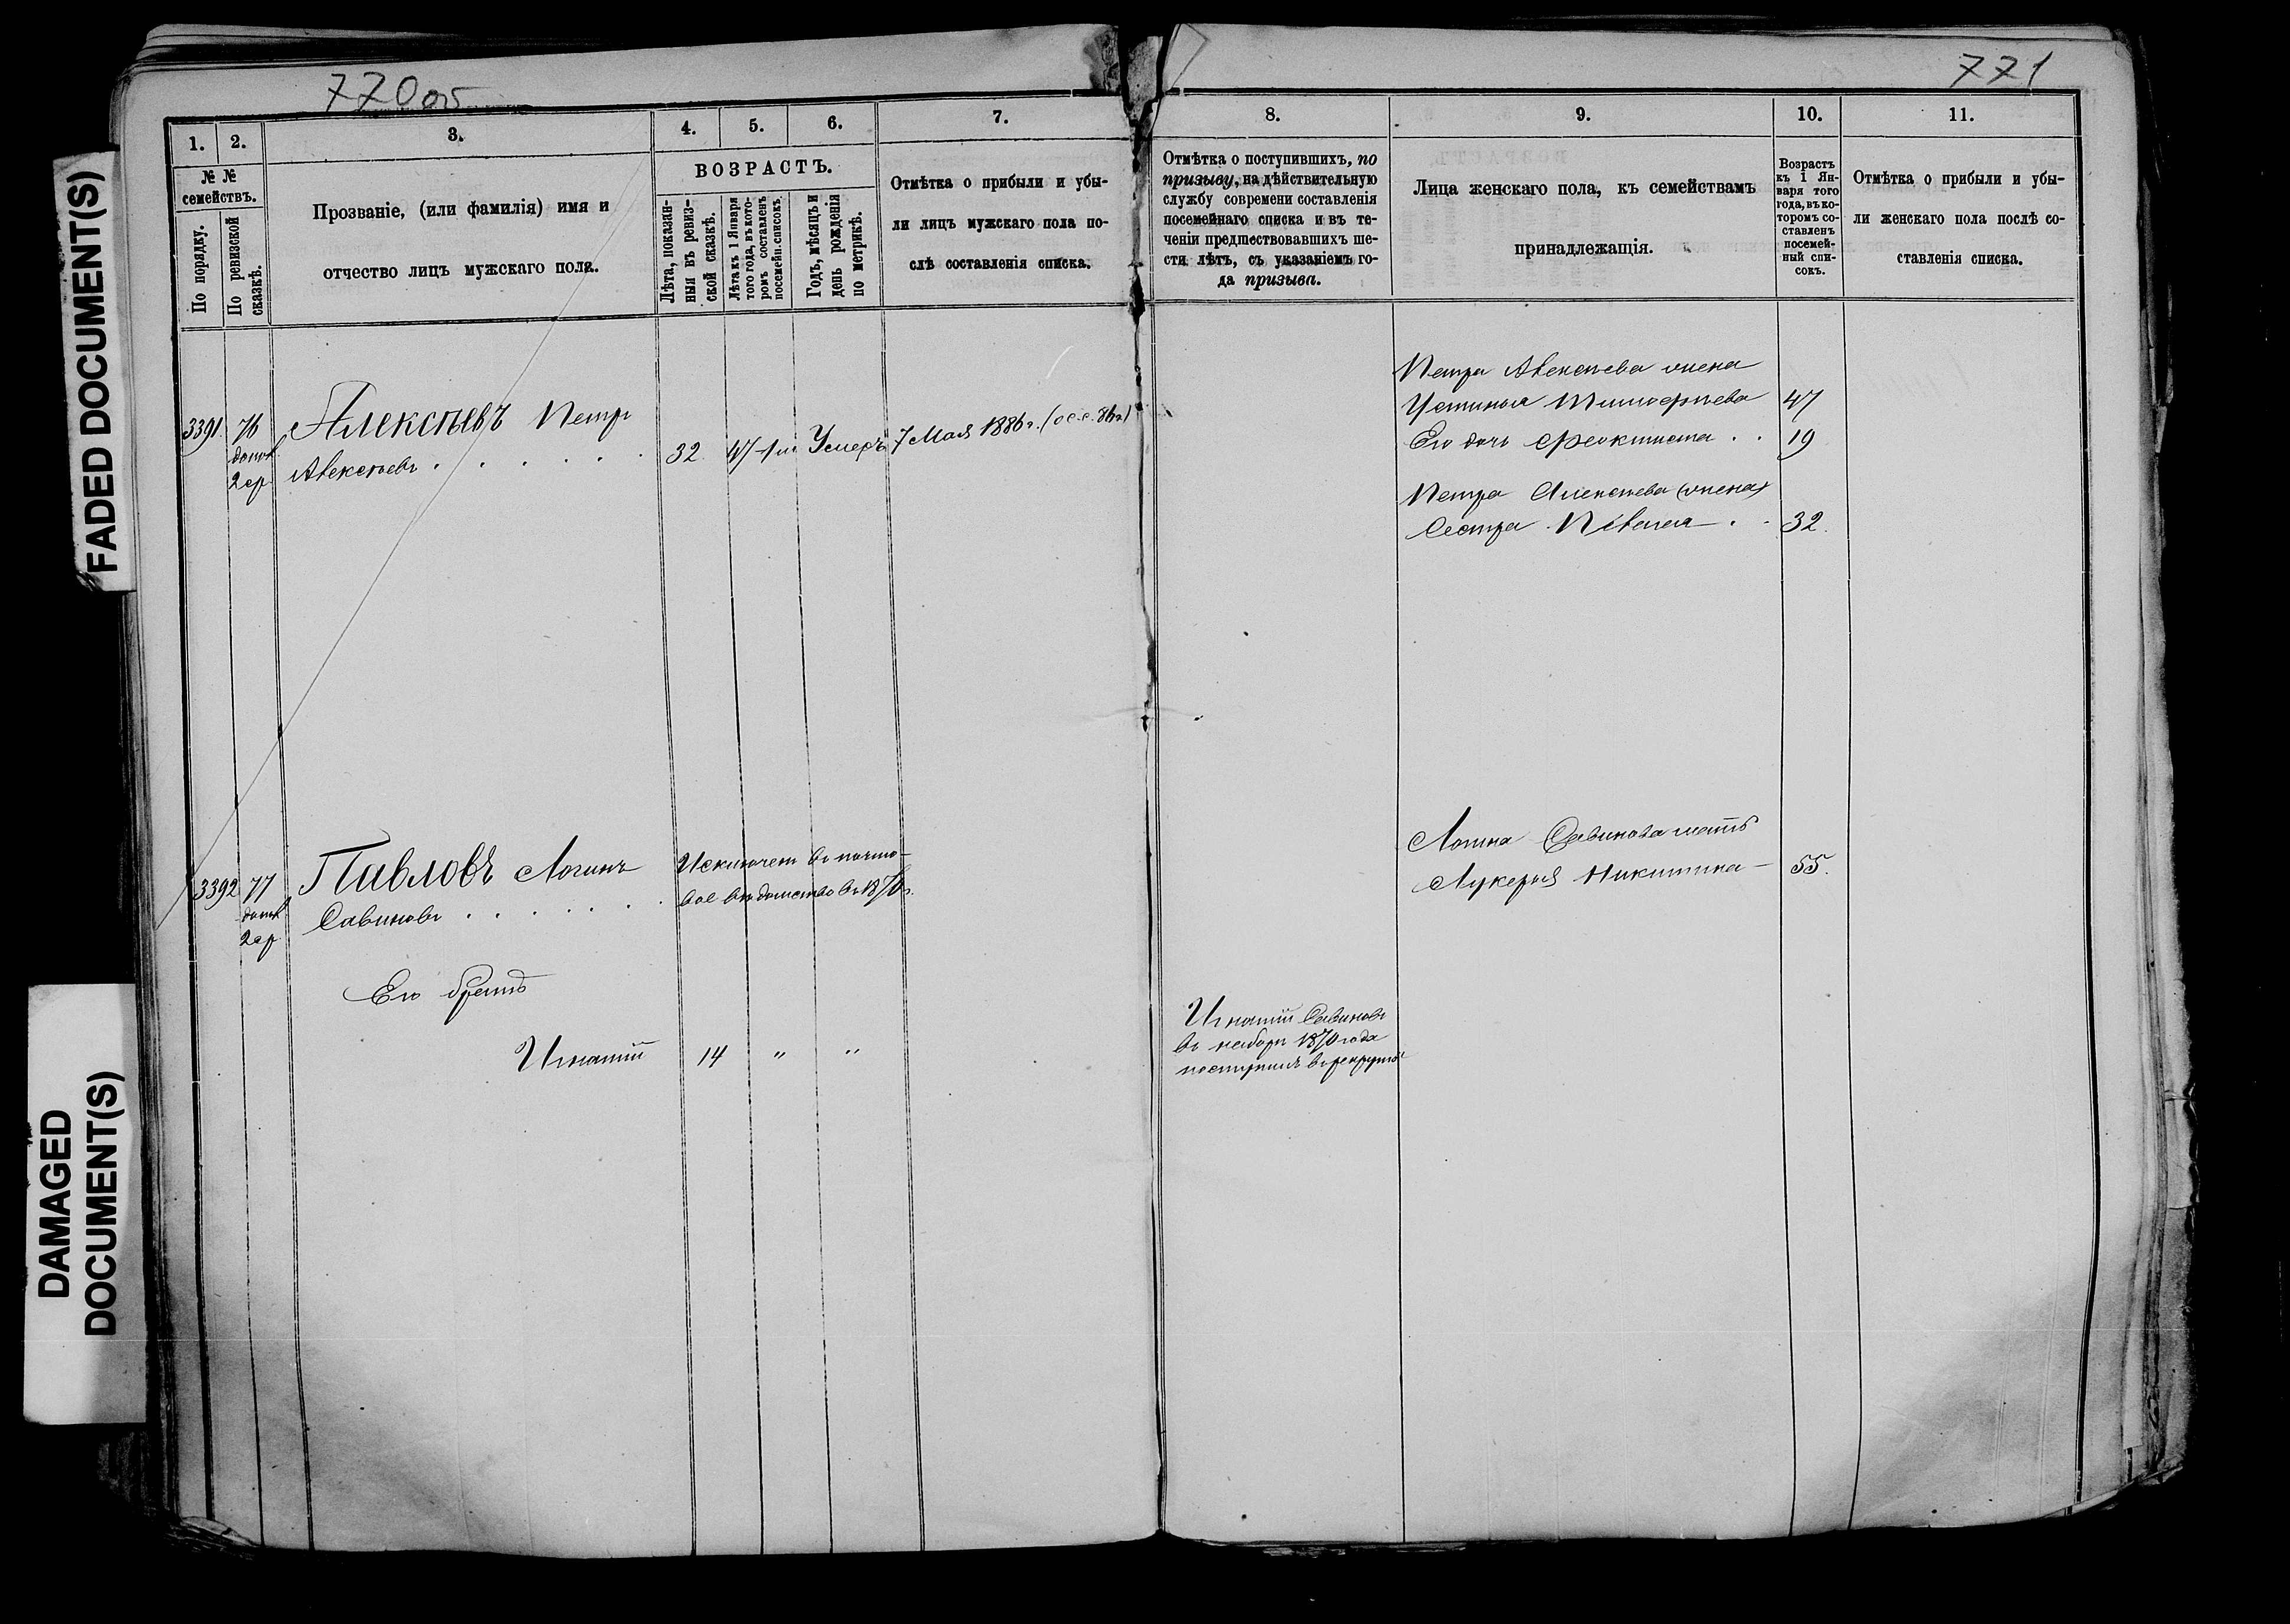 FADED DOCUMENT(S)
DAMAGED
DOCUMENT(S)
770об
1.
2.
3.
4.
5.
6.
7.
№ №
семействъ.
По порядку.
По ревизской
сказкѣ.
Прозваніе, (или фамилія) имя и
отчество лицъ мужскаго пола.
ВОЗРАСТЪ.
Лѣта, показан-
ныя въ ревиз-
ской сказкѣ.
Лѣта къ 1 Января
того года, въ кото-
ромъ составленъ
посемейн. списокъ.
Годъ, мѣсяцъ и
день рожденія
по метрикѣ.
Отмѣтка о прибыли и убы-
ли лицъ мужскаго пола по-
слѣ составленія списка.
3391 76 Алексѣевъ Петръ
2 ср. Алексѣевъ . . . . . . 32. 47 Умеръ 7 Мая 1886 г.
3392 77 Павловъ Логинъ Исключенъ въ почто-
2 ср. Савиновъ . . . . . . вое вѣдомство въ 1870 г.
Его братъ
Игнатій 14 " "
771
8.
9.
10.
11.
Отмѣтка о поступившихъ, по
призыву, на дѣйствительную
службу современи составленія
посемейнаго списка и въ те-
ченіи предшествовавшихъ ше-
сти лѣтъ, съ указаніемъ го-
да призыва.
Лица женскаго пола, къ семействамъ
принадлежащія.
Возрастъ
къ 1 Ян-
варя того
года, въ ко-
торомъ со-
ставленъ
посемей-
ный спи-
сокъ.
Отмѣтка о прибыли и убы-
ли женскаго пола послѣ со-
ставленія списка.
Петра Алексѣева жена
Устинья Тимофѣева 47
Его дочь Феоктиста . . 19
Петра Алексѣева (жена)
Сестра . . 32.
Логина Савинова мать
Лукерья Никитина — 55.
Игнатій Савиновъ
въ наборъ 1870 года
поступилъ въ рекруты